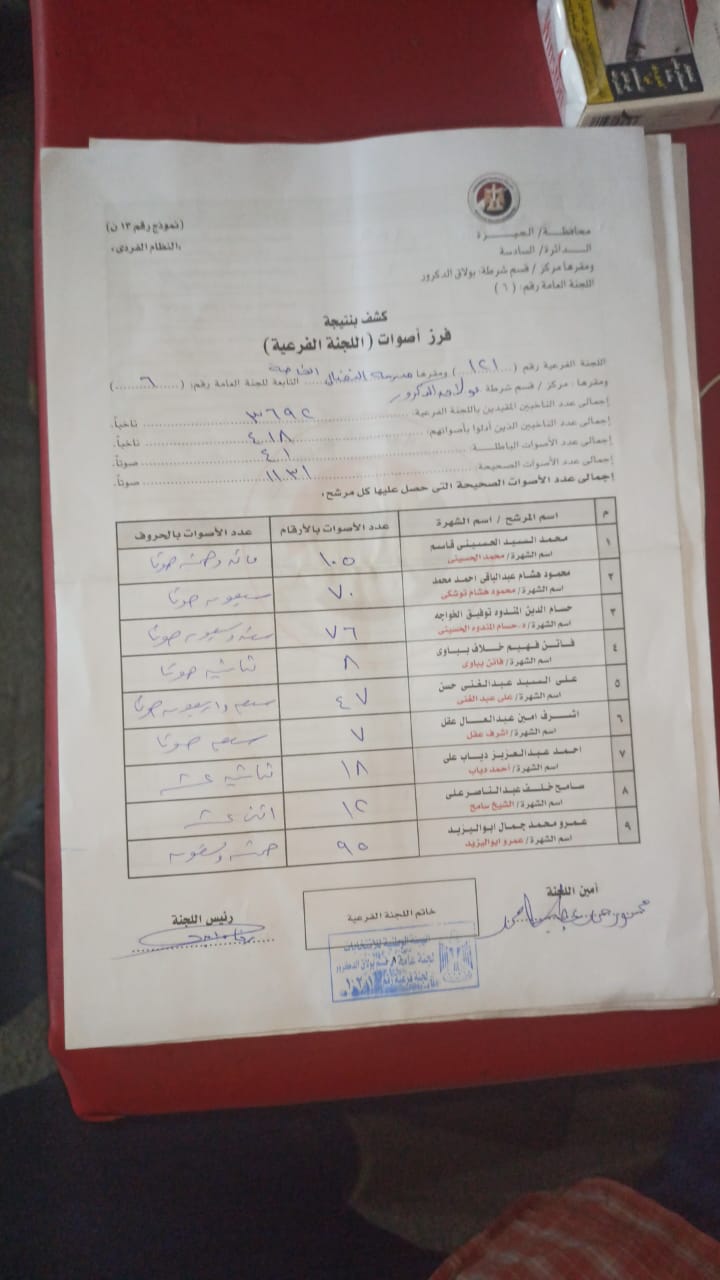 محافظة/ الجيزة
الدائرة/ السادسة
ومقرها مركز / قسم شرطة: بولاق الدكرور
اللجنة العامة رقم: ( ٦ )
(نموذج رقم ١٣ ن)
«النظام الفردى»
كشف بنتيجة
فرز أصوات (اللجنة الفرعية)
اللجنة الفرعية رقم (١٢١) ومقرها مدرسة الخاصة
ومقرها: مركز / قسم شرطة بولاق الدكرور التابعة للجنة العامة رقم: (٦)
إجمالى عدد الناخبين المقيدين باللجنة الفرعية: ٣٦٩٢ ناخباً.
إجمالى عدد الناخبين الذين أدلوا بأصواتهم: ٤١٨ ناخباً.
إجمالى عدد الأصوات الباطلة: ٤١ صوتاً.
إجمالى عدد الأصوات الصحيحة: صوتاً.
إجمالى عدد الأصوات الصحيحة التى حصل عليها كل مرشح:
م اسم المرشح / اسم الشهرة عدد الأصوات بالأرقام عدد الأصوات بالحروف
١ محمد السيد الحسينى قاسم ١٠٥ مائة وخمسة صوتا
اسم الشهرة/ محمد الحسينى
٢ محمود هشام عبدالباقى احمد محمد ٧٠ سبعون صوتا
اسم الشهرة/ محمود هشام توشكى
٣ حسام الدين المندوه توفيق الخواجه ٧٦ ستة وسبعون صوتا
اسم الشهرة/ د. حسام المندوه الحسينى
٤ فاتن فهيم خلاف بباوى ٨ ثمانية صوتا
اسم الشهرة/ فاتن بباوى
٥ على السيد عبدالغنى حسن ٤٧ سبعة واربعون صوتا
اسم الشهرة/ على عبد الغنى
٦ اشرف امين عبدالعال عقل ٧ سبعة صوتا
اسم الشهرة/ اشرف عقل
٧ احمد عبدالعزيز دياب على ١٨ ثمانية عشر
اسم الشهرة/ احمد دياب
٨ سامح خلف عبدالناصر على ١٢ اثنى عشر
اسم الشهرة/ الشيخ سامح
٩ عمرو محمد جمال ابواليزيد ٩٥ خمسة وتسعون
اسم الشهرة/ عمرو ابواليزيد
أمين اللجنة
خاتم اللجنة الفرعية
رئيس اللجنة
الهيئة الوطنية للانتخابات
قسم بولاق الدكرور
لجنة فرعية رقم